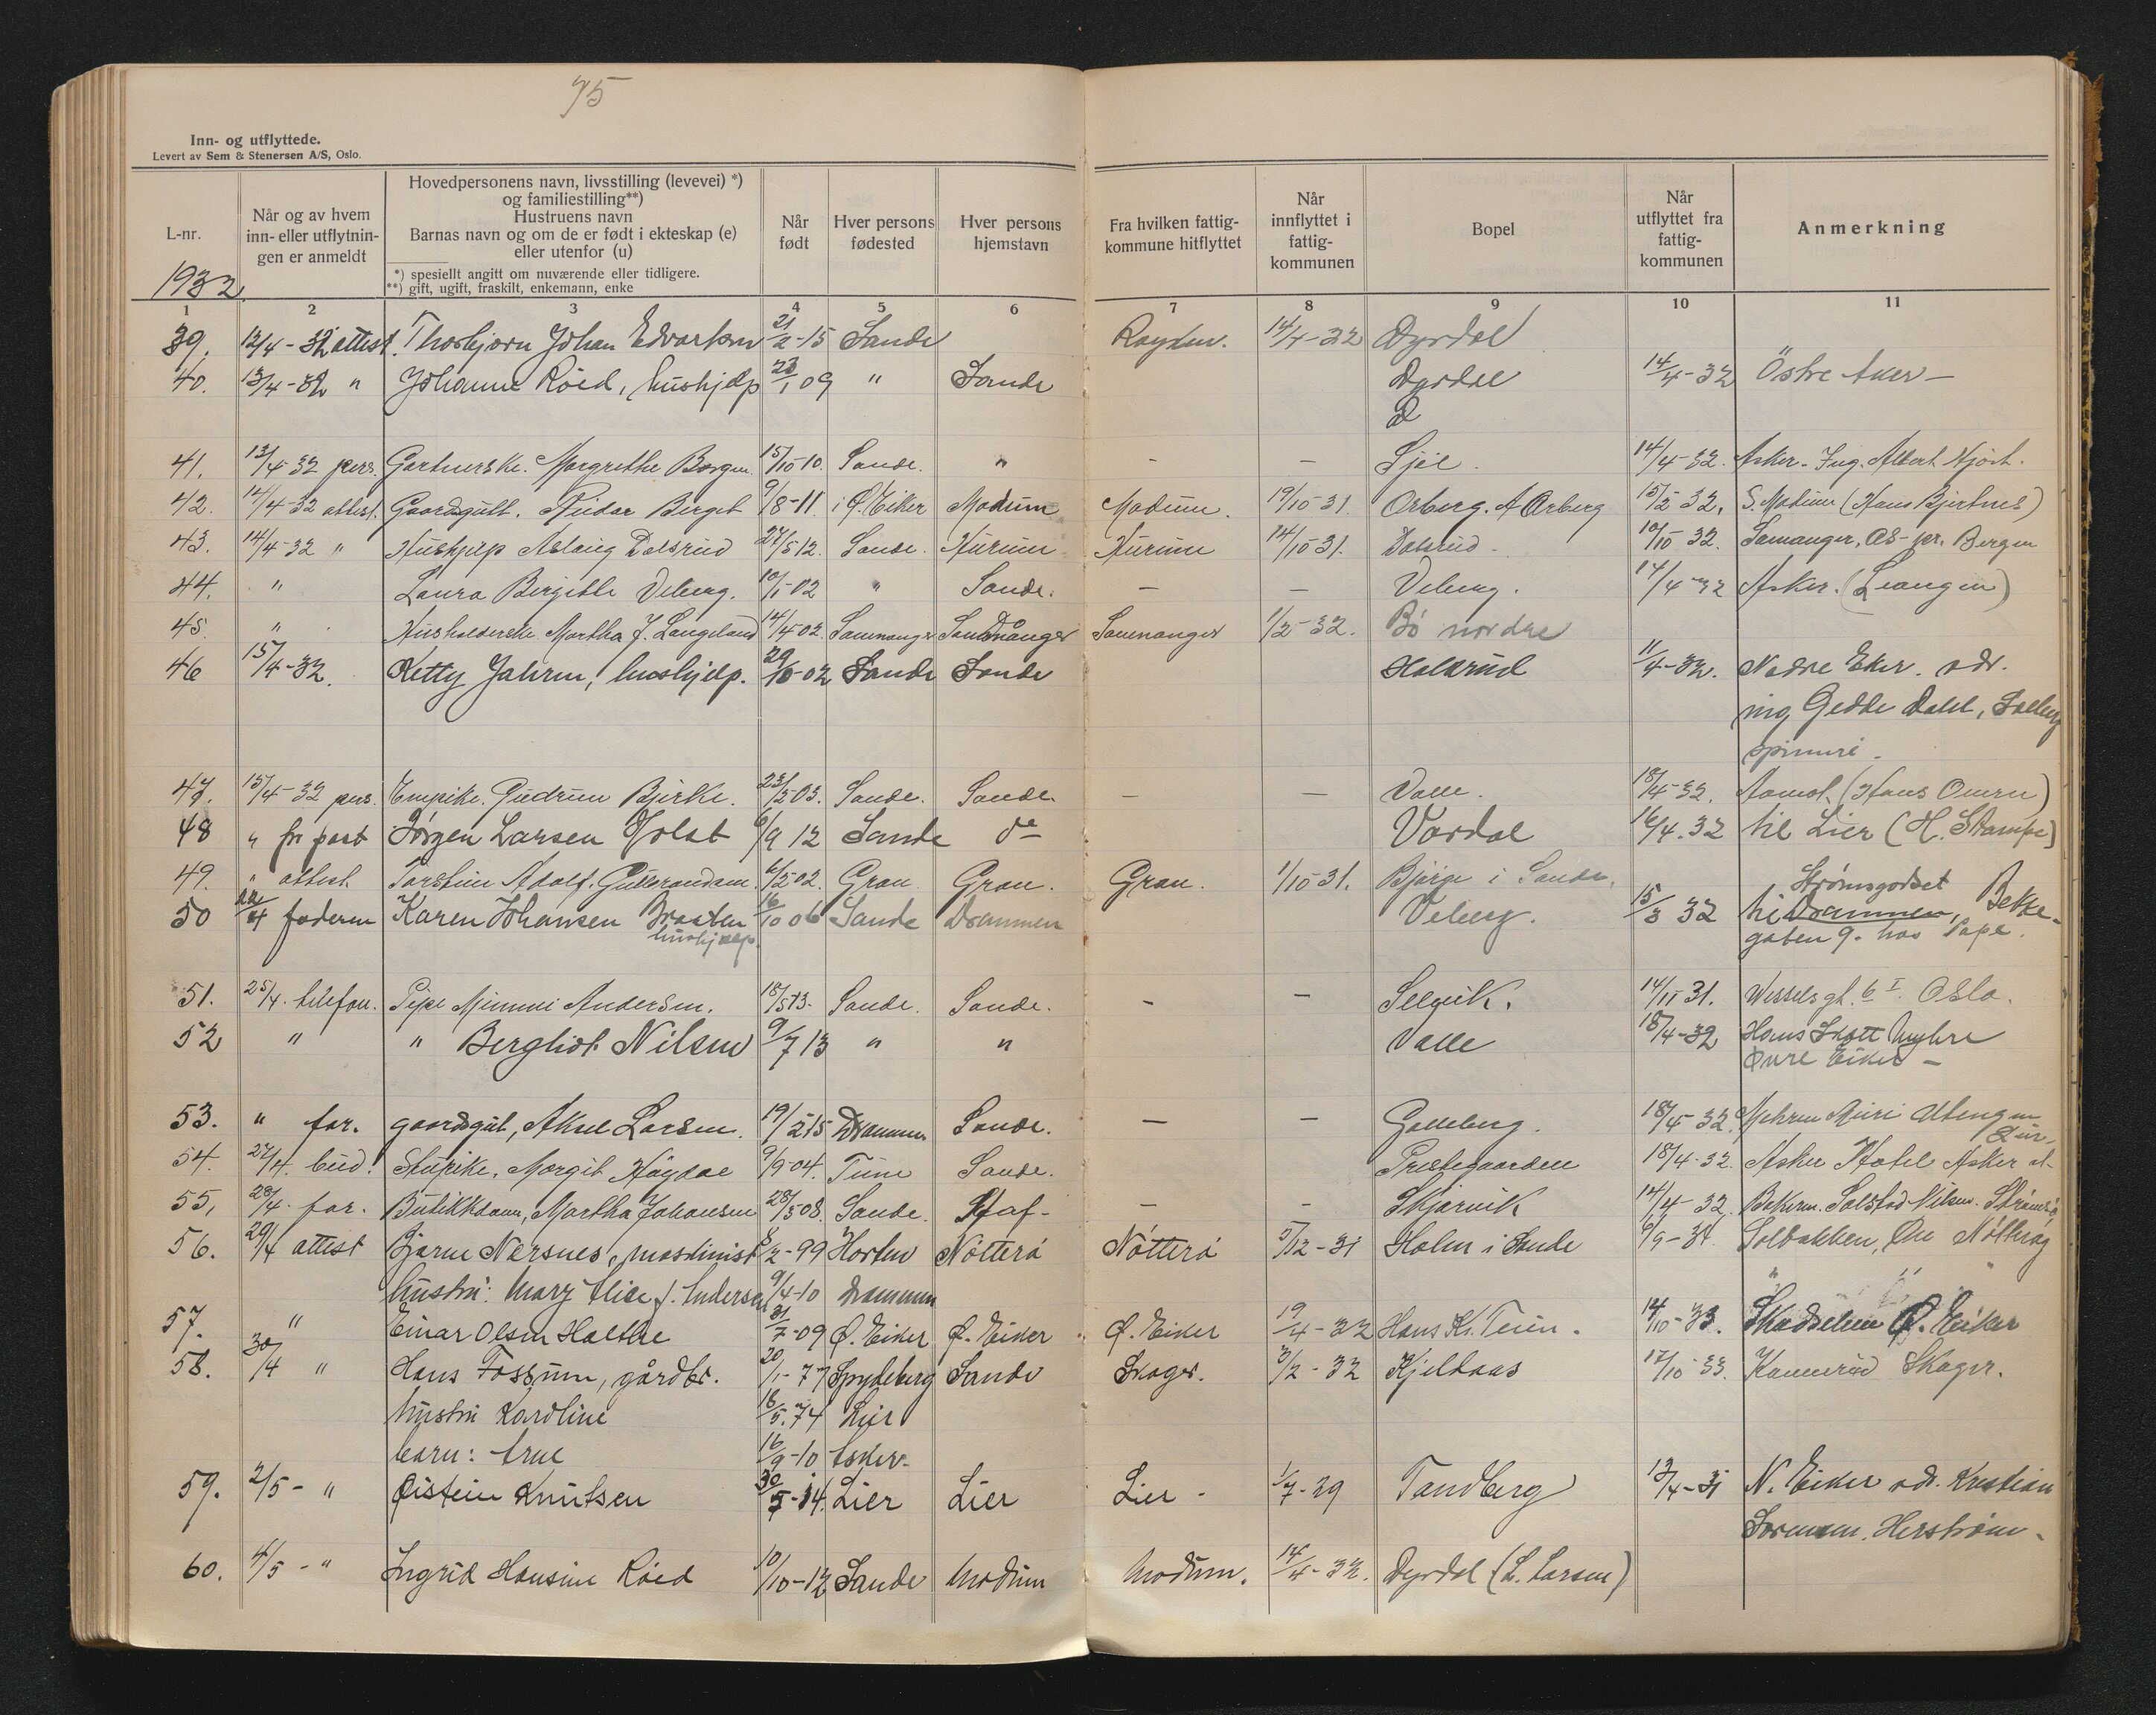 75
Inn- og utflyttede.
Levert av Sem & Stenersen A/S, Oslo.
L-nr.
1932
Når og av hvem inn- eller utflytnin-gen er anmeldt
Hovedpersonens navn, livsstilling (levevei) *)
og familiestilling**)
Hustruens navn
Barnas navn og om de er født i ekteskap (e)
eller utenfor (u)
*) spesiellt angitt om nuværende eller tidligere.
**) gift, ugift, fraskilt, enkemann, enke
Når født
Hver persons fødested
Hver persons hjemstavn
Fra hvilken fattig-kommune hitflyttet
Når innflyttet i fattig-kommunen
Bopel
Når utflyttet fra fattig-kommunen
Anmerkning
1 2 3 4 5 6 7 8 9 10 11
39. 12/4-32 attest. Thorbjørn Johan Edvartsen 21/2-15 Sande Røyken. 14/4-32 Dyrdal
40. 13/4-32 " Johanne Röed, hushjelp 23/1 09 " Sande Dyrdal 14/4-32 Östre Aker -
41. 13/4-32 pers. Gartnerske. Margrethe Borgen. 15/10-10. Sande. " - - Sjøl. 14/4-32. Asker. Ing. Albert Hjort.
42. 14/4-32 attest. Gaardsgutt. Reidar Berget 9/8-11. i Ø. Eiker Modum Modum. 19/10-31. Orberg. A Orberg 15/2-32. S. Modum (Hans Bjertnes)
43. 14/4-32 " Hushjelp Aslaug Dalsrud 27/5 12. Sande. Hurum Hurum 14/10 31. Dalsrud. 10/10 32. Samanger, Os- pr. Bergen
44. " Laura Birgitte Veberg. 10/1-02 " Sande. - - Veberg. 14/4-32 Asker. (Leangen)
45. " Husholderske Martha J. Langeland 14/4 02. Samnanger Samnanger Samnanger 1/2-32. Bö nordre
46 15/4-32. Ketty Jahren, hushjelp. 29/6-02 Sande Sande Holsrud 11/4-32. Nedre Eker. adr.
ing. Gedde Dahl, Solberg
spinneri.
47. 15/4-32 pers. Tempike. Gudrun Bjerke. 23/2 03. Sande. Sande. - - Valle. 18/4-32. Aamot. (Hans Omre)
48 " pr post Jørgen Larsen Holst 6/9 12 Sande do Vardal 16/4.32 til Lier (H. Stampe)
49. " attest. Torstein Adolf. Gulbrandsen. 6/2 02. Gran Gran. Gran. 1/10 31. Bjørge i Sande.
50 22/4 faderen Karen Johansen Braaten 16/10 06 Sande Drammen Veberg. 15/3 32 til Drammen, Strømsgodset Bekke-
hushjelp. gaten 9. hos Pape.
51. 25/4. telefon. Pipe Mimmi Andersen. 18/5 13. Sande. Sande. - - Selvik. 14/11 31. Wesselsgt. 6 I. Oslo.
52 " " Bergliot Nilsen 9/7 13 " " Valle 18/4-32 Hans Skott Myhre
Øvre Eiker -
53. " far. gaardsgut, Aksel Larsen. 19/2 15 Drammen Sande. - - Galleberg. 18/4-32.
Lier.
54. 27/4. bud. Stupike. Margit Høydal 9/9-04. Tune Sande. Prestegaarden 18/4-32. Asker Hotel Asker st-
55. 28/4. far. Butikkdame, Martha Johansen 28/5 08. Sande. - - Skjærvik 14/4-32. Bakerm. Solstad Nilsen. Strømsö
56. 29/4 attest Bjarne Narsnes, maskinist 8/2-99 Horten Nötterö Nötterö 5/12-31 Holm i Sande 6/9-34 Solbakken, Öre Nötterøy
hustru: Mary Elise f. Andersen 9/4-10 Drammen " " "
57. " Einar Olsen Holthe 31/7-09 Ø. Eiker Ø. Eiker Ø. Eiker 19/4-32 Hans Kr. Teien. 14/10-33. Skadselum Ø. Eiker
58. 30/4 " Hans Fossum, gårdbr. 20/1-77 Spydeberg Sande Skoger. 3/2-32 Kjeldaas 17/10-33. Kamerud Skoger.
hustru Karoline 18/5.74 Lier
barn: Arne 16/9-10 Asker-
59. 2/5- " Øistein Knutsen 30/5-14. Lier Lier Lier - 1/7-29 Tandberg 13/4-31 N. Eiker adr. Kristian
Sorensen, Herstrøm.
60. 4/5- " Ingrid Hansine Röed 10/10-12 Sande Modum Modum. 14/4-32. Dyrdal (L. Larsen)